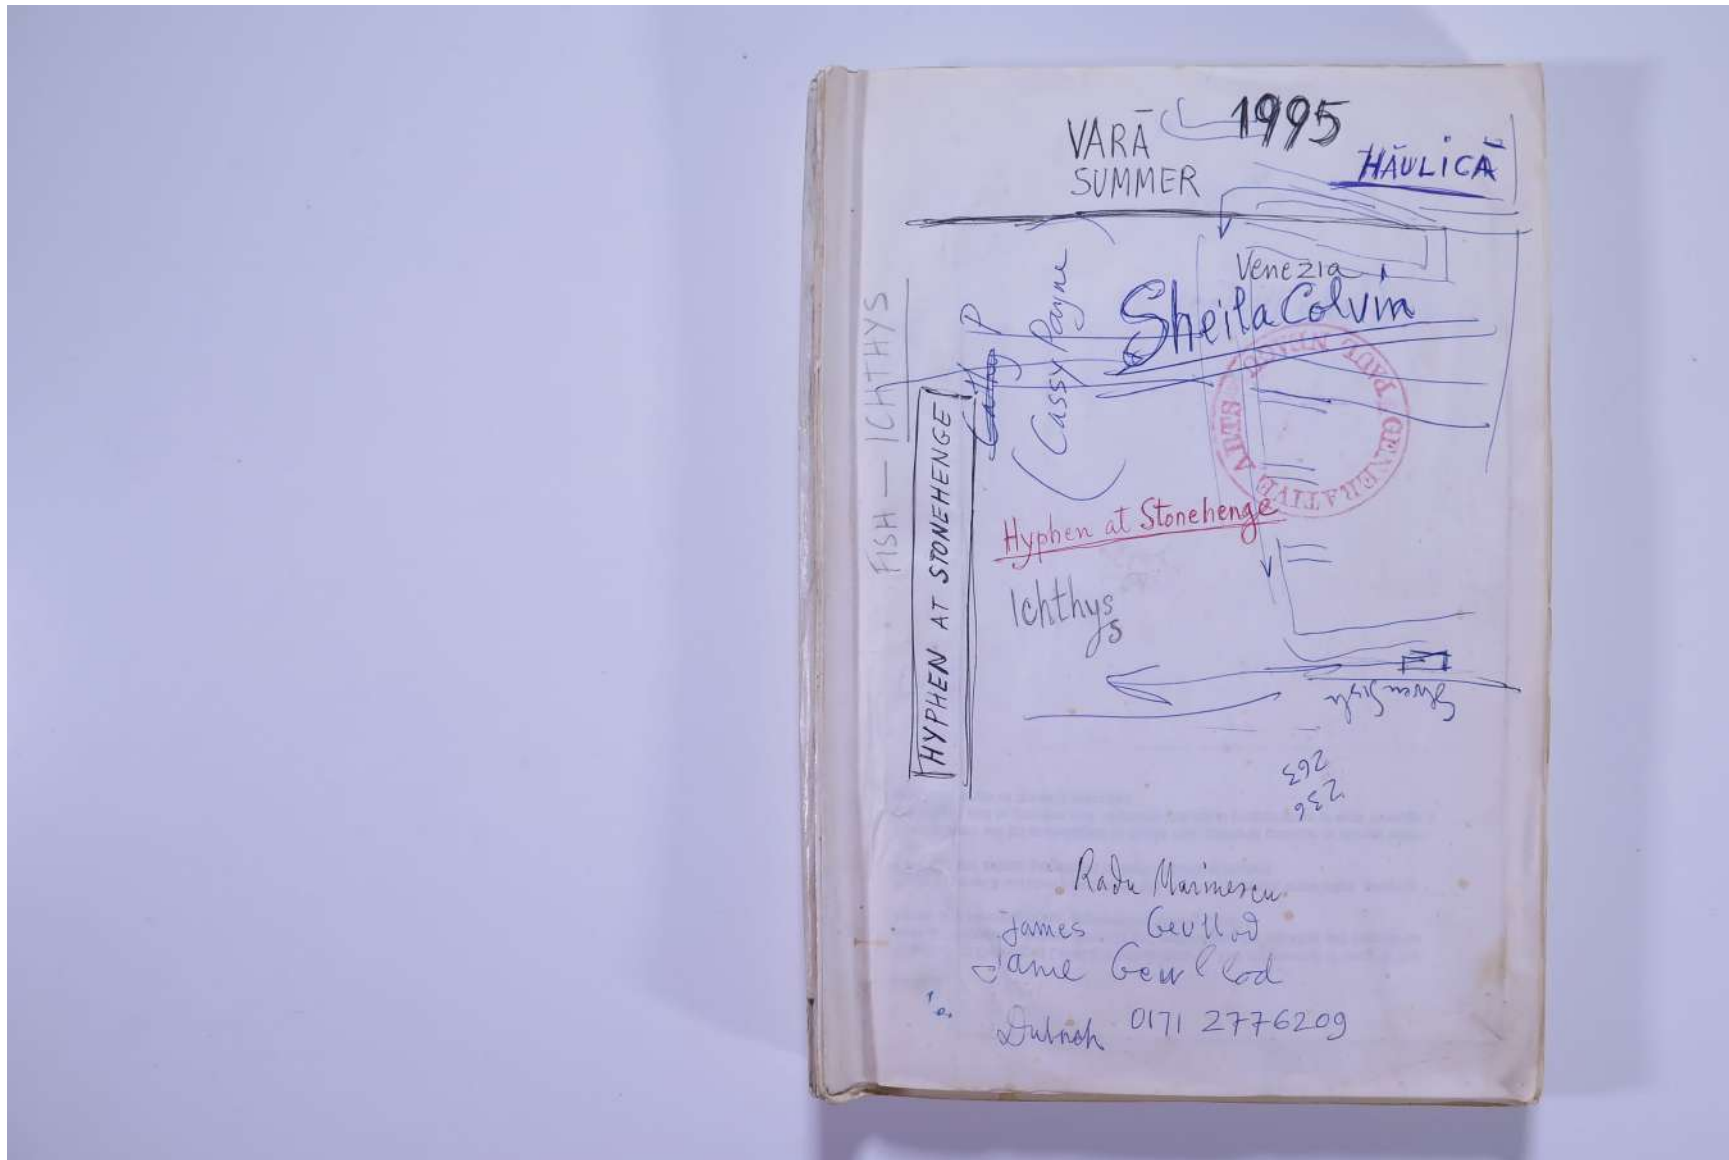 1995
VARĂ
SUMMER
HĂULICĂ
Venezia
Sheila Colvin
Cathy P
(Cassy Payne)
FISH — ICHTHYS
HYPHEN AT STONEHENGE
PAUL NEAGU GENERATIVE ARTS
Hyphen at Stonehenge
Ichthys
s
263
236
Radu Marinescu
James
Jamie
0171 2776209